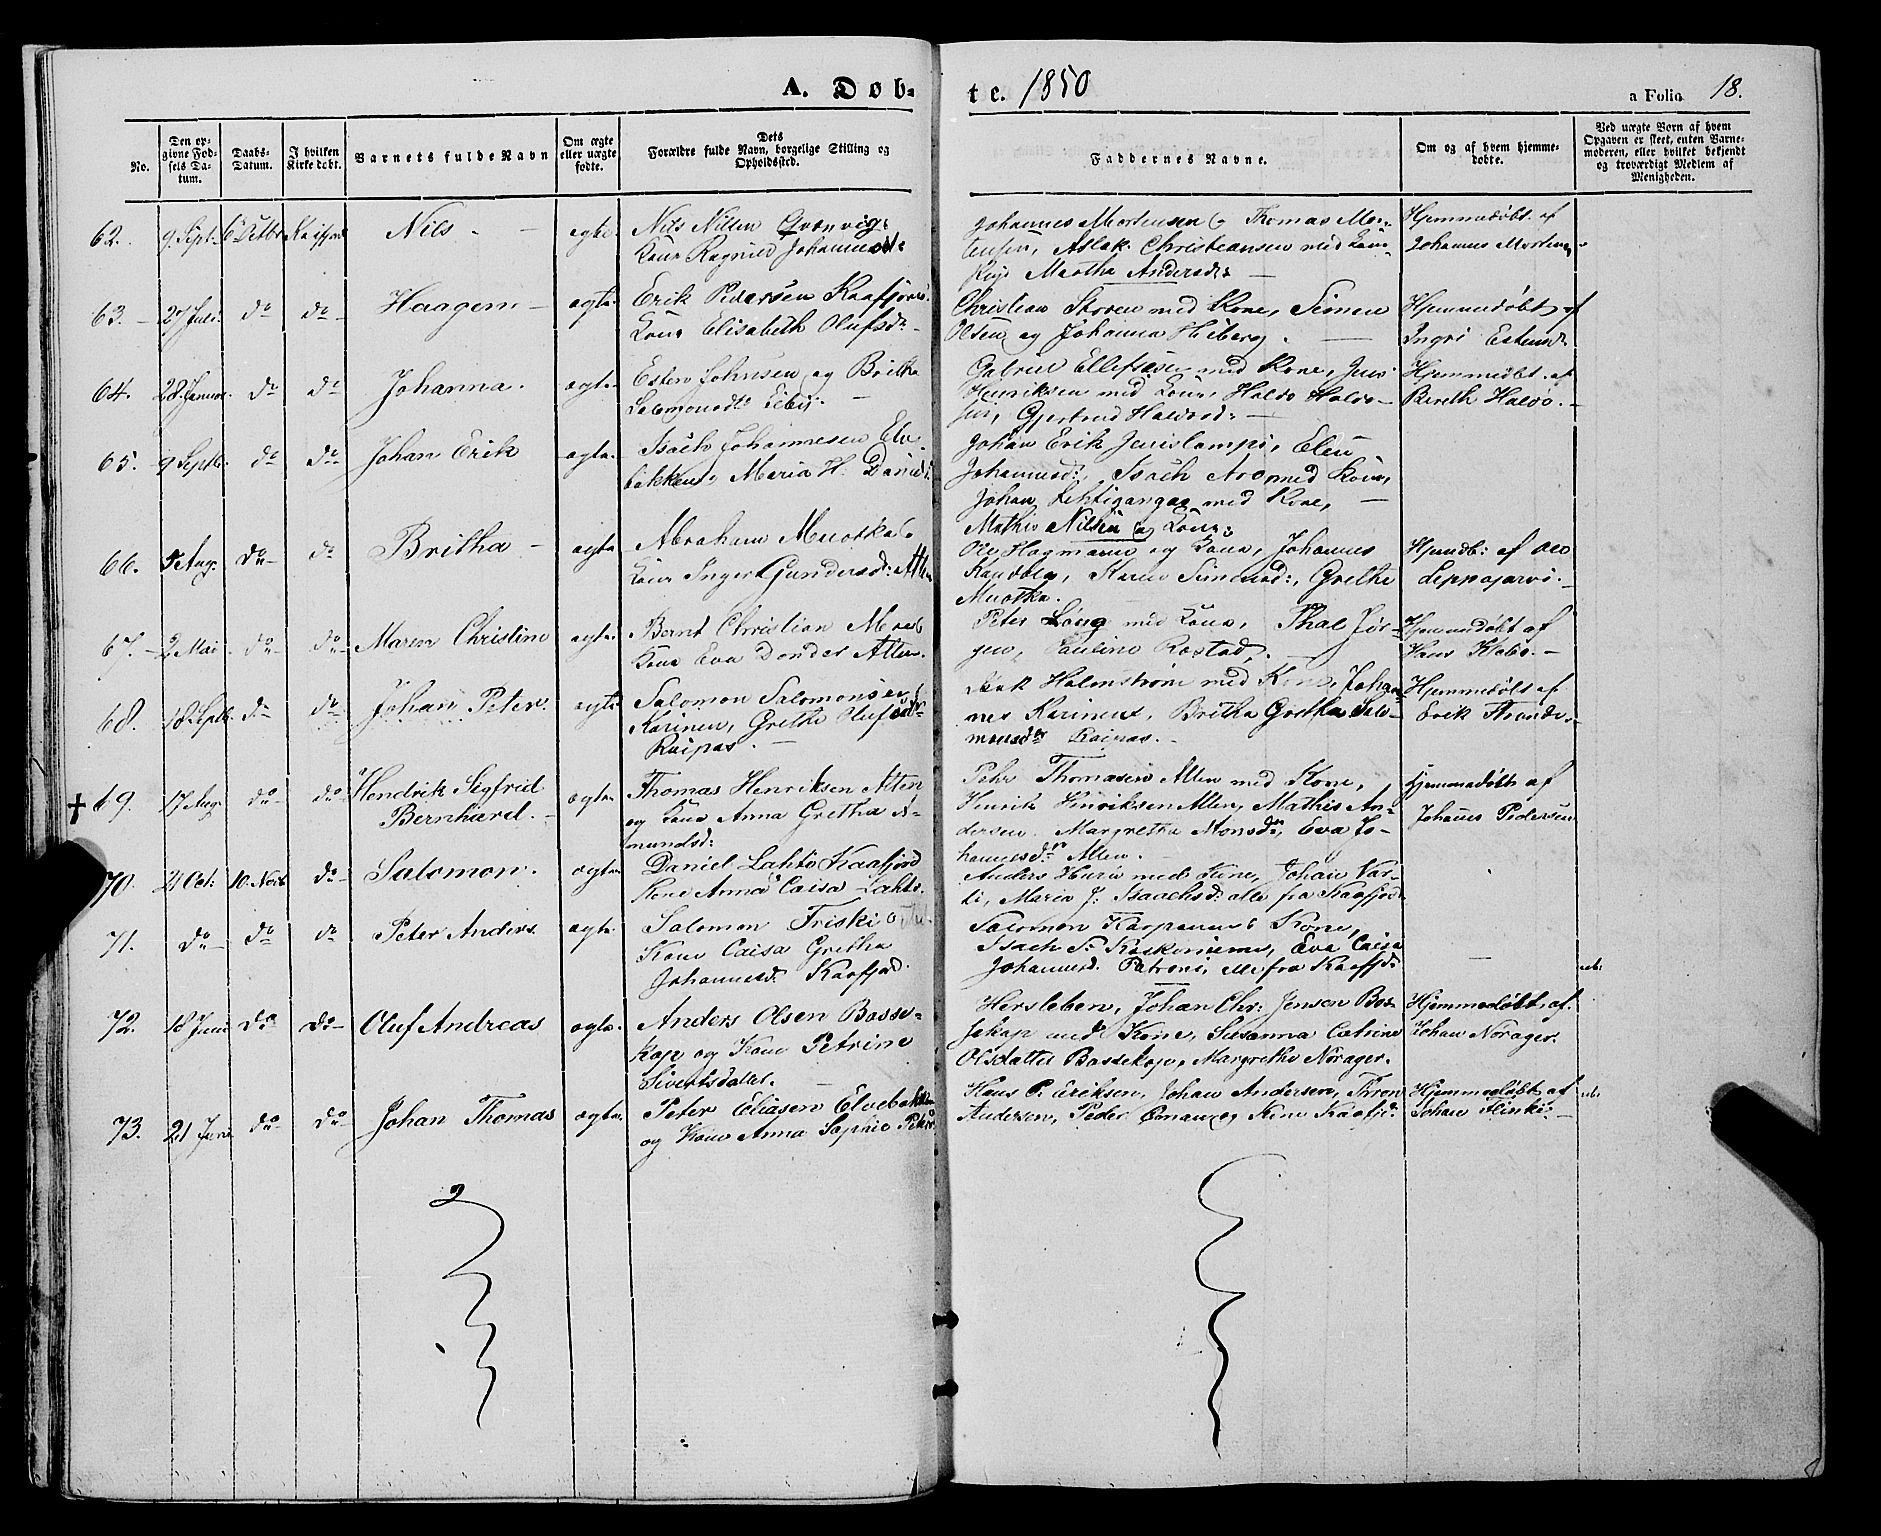 A. Døb- te. 1850
a Folio 18.
No.
Den op-
givne Fød-
sels Da-
tum.
Daabs-
Datum.
I hvilken
Kirke døbt.
Barnets fulde Navn
Om ægte
eller uægte
fødte.
Dets
Forældre fulde Navn, borgelige Stilling og
Opholdssted.
Faddernes Navne.
Om og af hvem hjemme-
døbte.
Ved uægte Børn af hvem
Opgaven er skeet, enten Barne-
moderen, eller hvilket bekjendt
og troværdigt Medlem af
Menigheden.
62. 9 Sept. 6 Octbr Kaafjord Nils - ægte.
Nils Nilsen
Kone Ragnild Johannesd:
Johannes Mortensen, Thomas Mor-
tensen, Aslak Christiansen med Kone
Martha Andersd:
Hjemmedøbt af
Johannes Mortensen
63. 27 Juli do do Haagen - ægte
Erik Pedersen Kaafjord
Kone Elisabeth Olufsd:
Christian Storen med Kone, Simen
Olsen og Johanna Hiberg.
Hjemmedøbt af
Ingri Estensd:
64. 28 Januar do do Johanna. ægte
Esten Johnsen og Britha
Salomonsdtr
Gabriel Ellefsen med Kone, Jens
Henriksen med Kone, Haldo Haldo-
sen, Gjertrud Halvorsd:
Hjemmedøbt af
Bereth Haldo.
65. 9 Septb. do do Johan Erik ægte
Isach Johannesen Elv-
bakken, Maria H. Daniels
Johan Erik Jerislampi, Elen
Johannesd: Isach Aro med Kone,
Johan Lehtigangas med Kone,
Mathis Nilsen og Kone.
66. 5 Aug. do do Britha - ægte
Abraham Muotka
Kone Inger Gundersd: Alten
Ole Hagmann og Kone, Johannes
Karen Simensd:, Grethe
Muotka.
Hjemdb: af Ole
Leppajarvi.
67. 2 Mai do do Maren Christine ægte
Bernt Christian
Kone Eva Alten.
Peter Lång med Kone, Thal Jør-
gen, Pauline Rostad,
Hjemmedøbt af
Hans Klebo.
68. 18 Septb. do do Johan Peter. ægte
Salomon Salomonsen
Karinen, Grethe Olufsdtr
Raipas.
Isak Holmstrøm med Kone, Johan-
nes Karinens, Britha Gretha Salo-
monsdtr Raipas.
Hjemmedøbt af
Erik
69. 17 Aug. do do Hendrik Sigfrid
Bernhard. ægte
Thomas Henriksen Alten
og Kone Anna Gretha A-
mundsd:
Pehr Thomasen Alten med Kone,
Henrik Henriksen Alten, Mathis An-
dersen. Margretha Monsdtr, Eva Jo-
hannesdtr Alten.
Hjemmedøbt af
Johans Pedersen
70. 21 Oct: 10 Novb do Salomon. ægte
Daniel Lahti Kaafjord
Kone Anna Caisa Lahti.
Anders med Kone, Johan Var-
ti, Maria J. Isaachsd: alle fra Kaafjord.
71. do do do Peter Anders. ægte
Salomon Friski
Kone Caisa Gretha
Johannesd: Kaafjord.
Salomon Kone,
Isach Eva Caisa
Johannesd. alle fra Kaafjd:
72. 18 Juni do do Oluf Andreas ægte.
Anders Olsen Bosse-
kop og Kone Petrine
Sivertsdatter.
Hersleben, Johan Chr: Jensen Bos-
sekop med Kone, Susanna Catrine
Olsdatter Bossekop, Margrethe Norager.
Hjemmedøbt af
Johan Norager.
73. 21 Juni do do Johan Thomas ægte.
Peter Eliasen Elvebakken
og Kone Anna Sophie
Hans P. Eriksen, Johan Andersen, Thron
Andersen, Peder og Kone Kaafjd:
Hjemmedøbt af
Johan